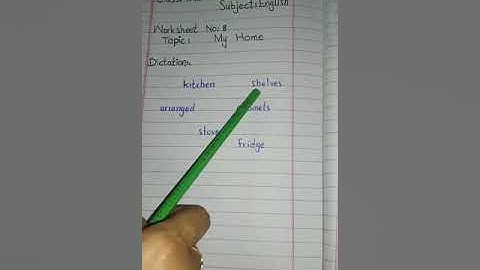 Subject: English
Worksheet No: 8
Topic: My Home
Dictation
kitchen shelves
arranged
stove
fridge